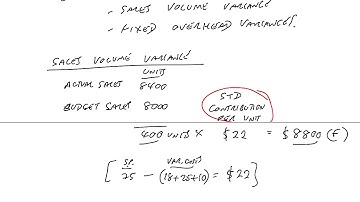 - SALES VOLUME VARIANCE
- FIXED OVERHEAD VARIANCES.
SALES VOLUME VARIANCE
UNITS
ACTUAL SALES 8400
BUDGET SALES 8000
STD
CONTRIBUTION
PER UNIT
400 UNITS × $22 = $8800 (F)
[ S.P. VAR. COSTS
75 - (18+25+10) = $22 ]